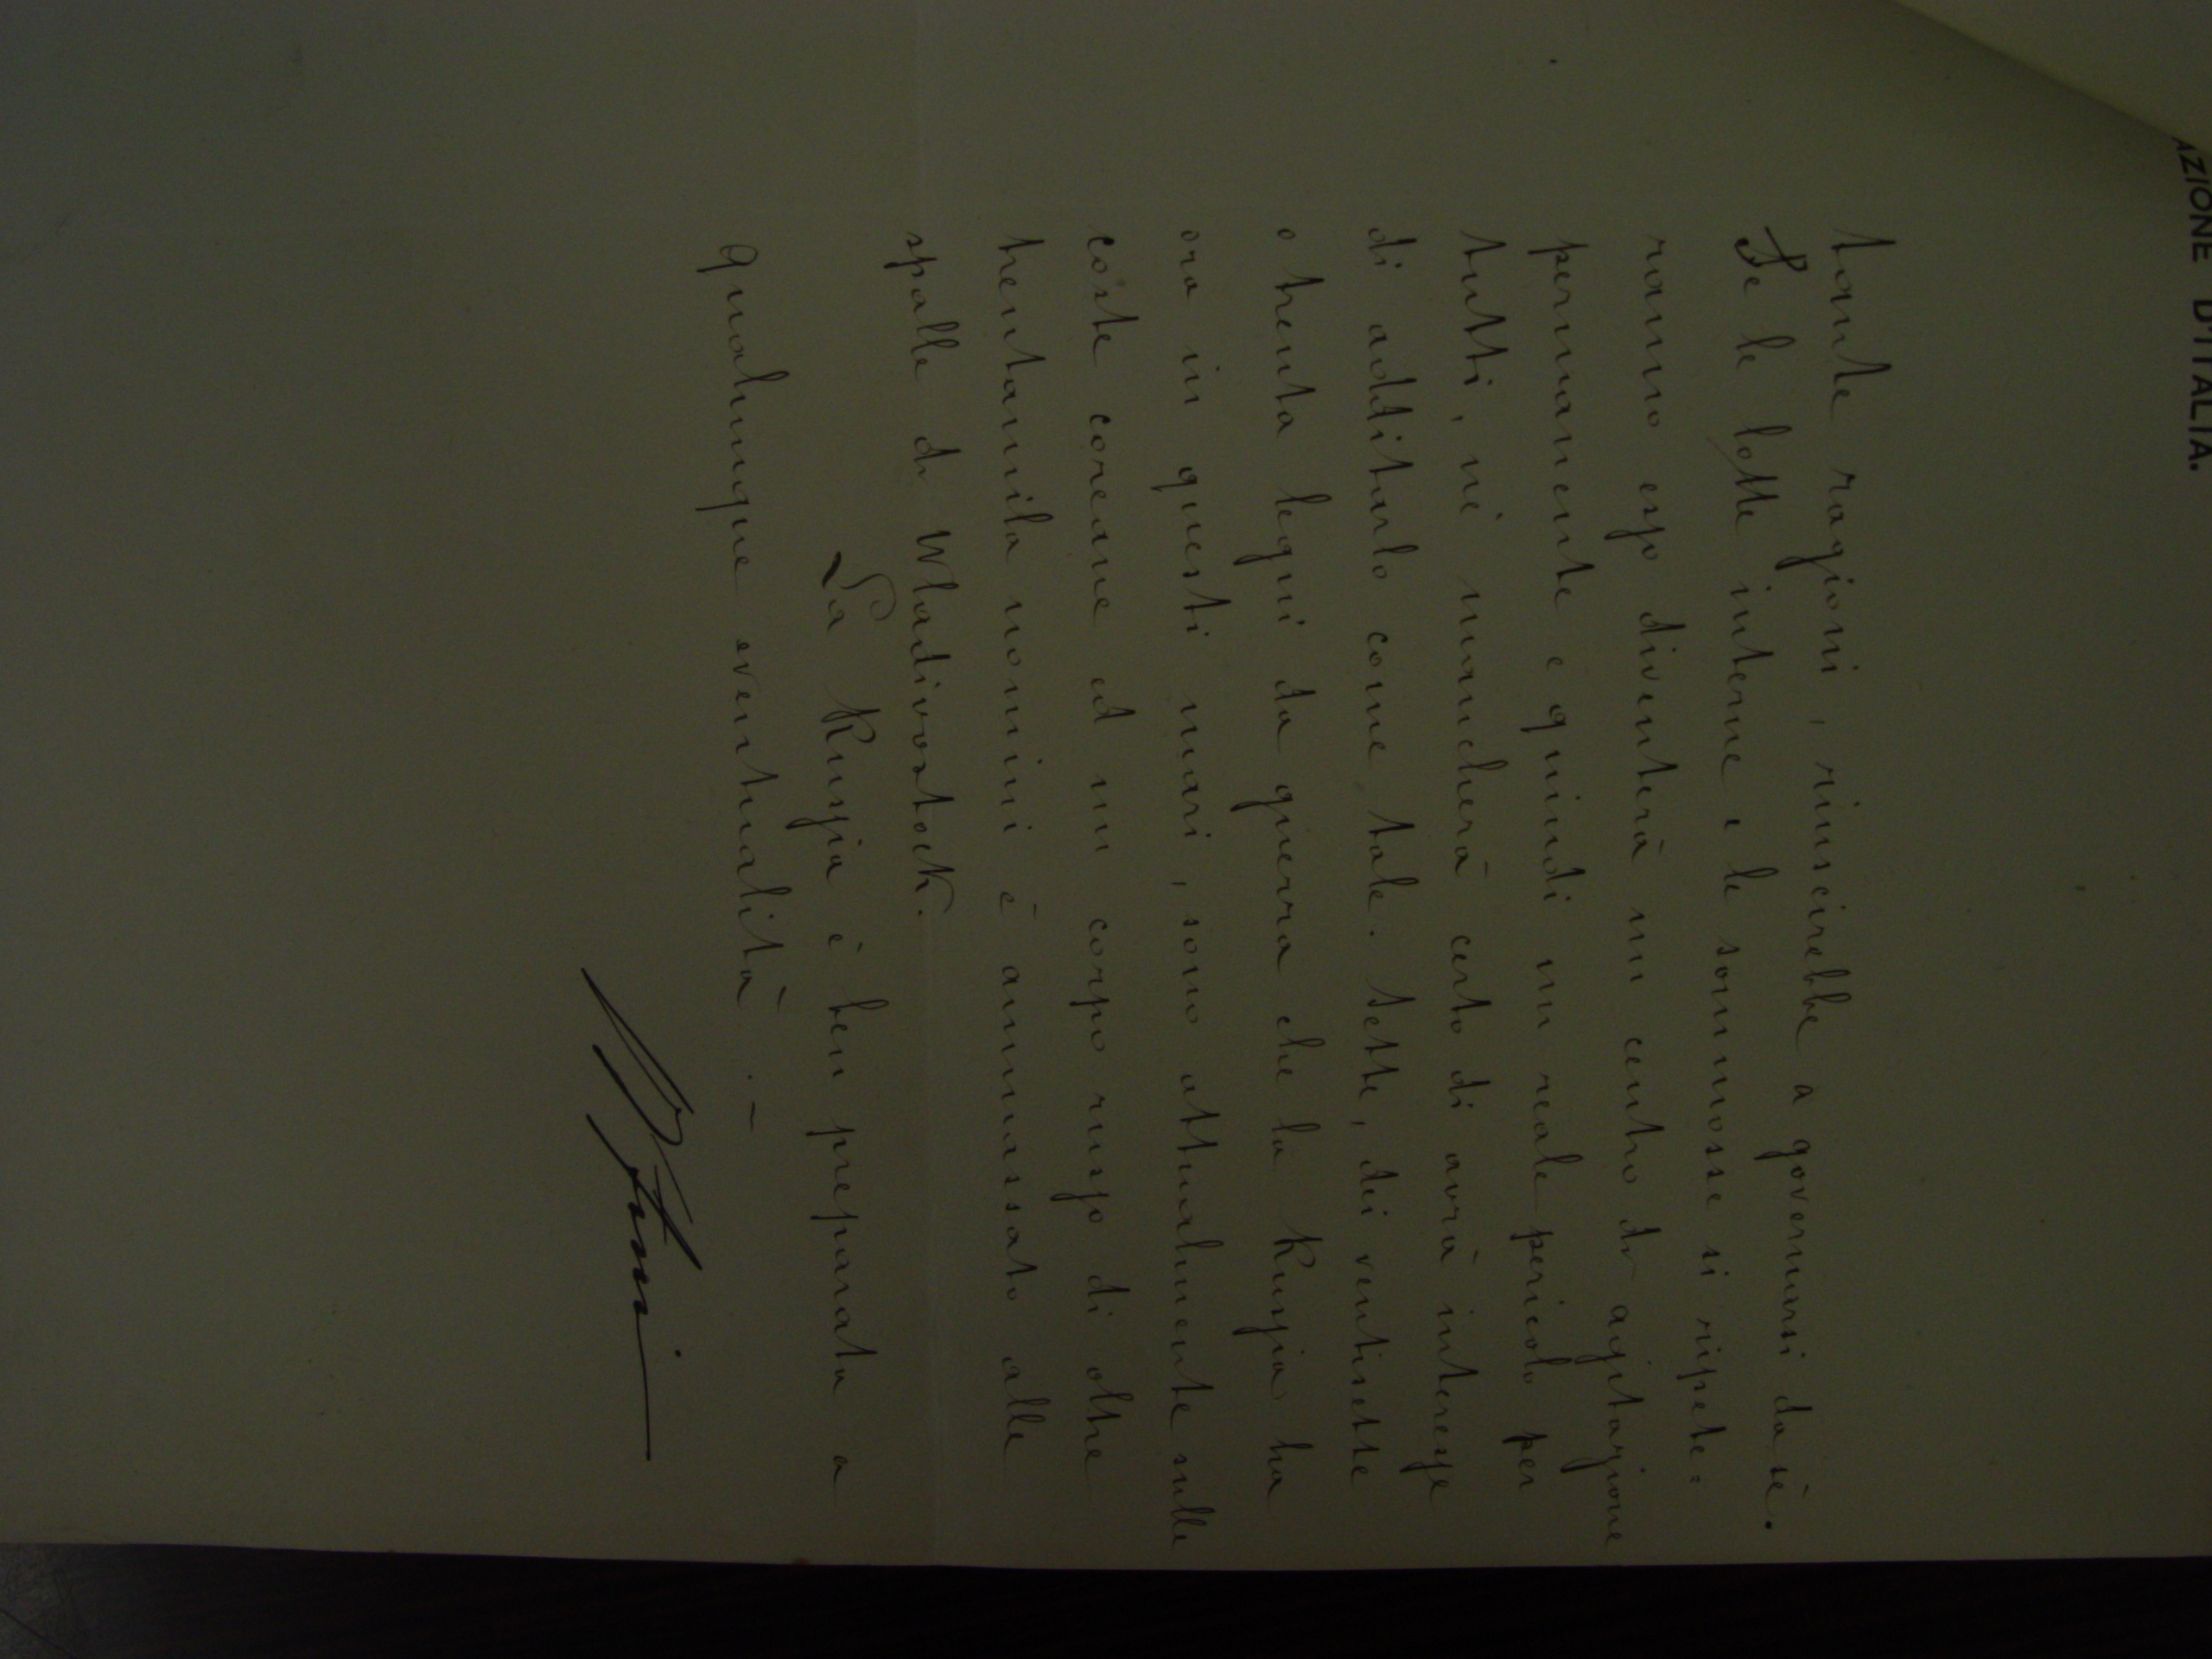 AZIONE D'ITALIA.
tante ragioni, riuscirebbe a governarsi da sè.
Se le lotte interne e le sommosse si ripete=
ranno esso diventerà un centro di agitazione
permanente e quindi un reale pericolo per
tutti, nè mancherà certo di avrà interesse
di additarlo come tale. Sette, dei ventisette
o trenta legni da guerra che la Russia ha
ora in questi mari, sono attualmente sulle
coste coreane ed un corpo russo di oltre
trentamila uomini è ammassato alle
spalle di Wladivostock.
La Russia è ben preparata a
qualunque eventualità. –